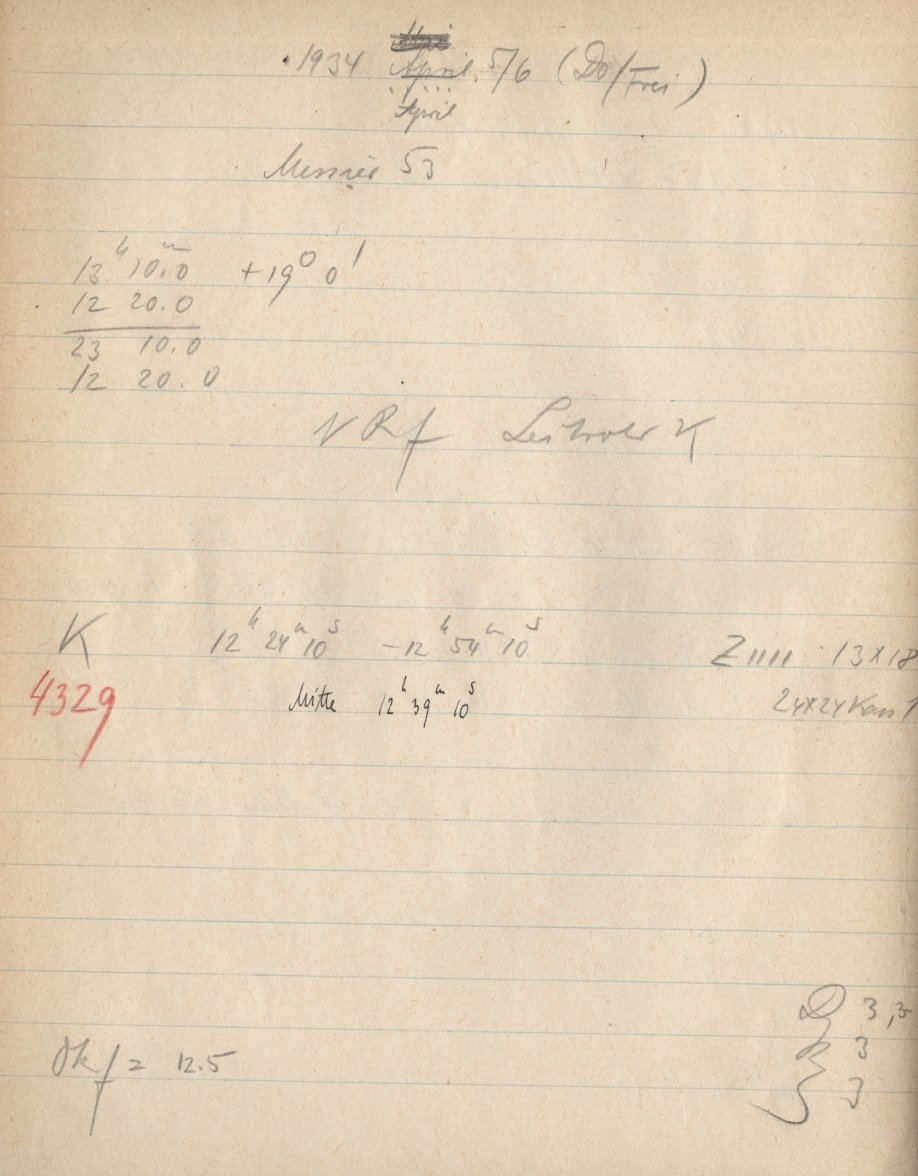 1934 April 5/6 (Do/Frei)
April
Messier 53
13ʰ 10.0ᵐ +19° 0'
12 20.0
23 10.0
12 20.0
N Rf K
K 12ʰ 24ᵐ 10ˢ – 12ʰ 54ᵐ 10ˢ Z IIII 13×18
4329 Mitte 12ʰ 39ᵐ 10ˢ 24×24 Kass
D 3,5
3
Okf = 12.5
3